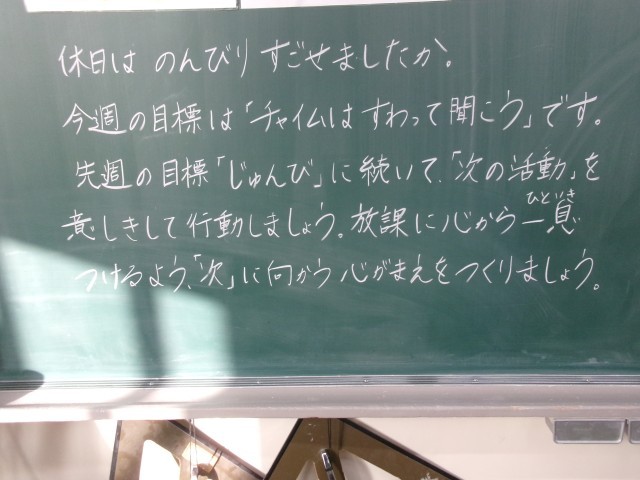 休日は のんびり すごせましたか。
今週の目標は「チャイムは すわって聞こう」です。
先週の目標「じゅんび」に続いて、「次の活動」を
意しきして行動しましょう。放課に心から一息
ひといき
つけるよう、「次」に向かう心がまえをつくりましょう。